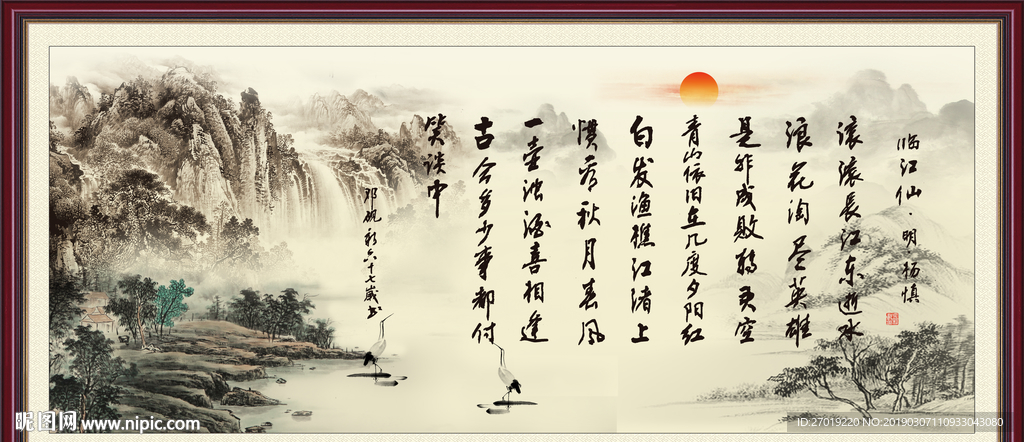 临江仙·明 杨慎
滚滚长江东逝水
浪花淘尽英雄
是非成败转头空
青山依旧在几度夕阳红
白发渔樵江渚上
惯看秋月春风
一壶浊酒喜相逢
古今多少事都付
笑谈中
六十七岁书
昵图网 www.nipic.com
ID:27019220 NO:20190307110933043080